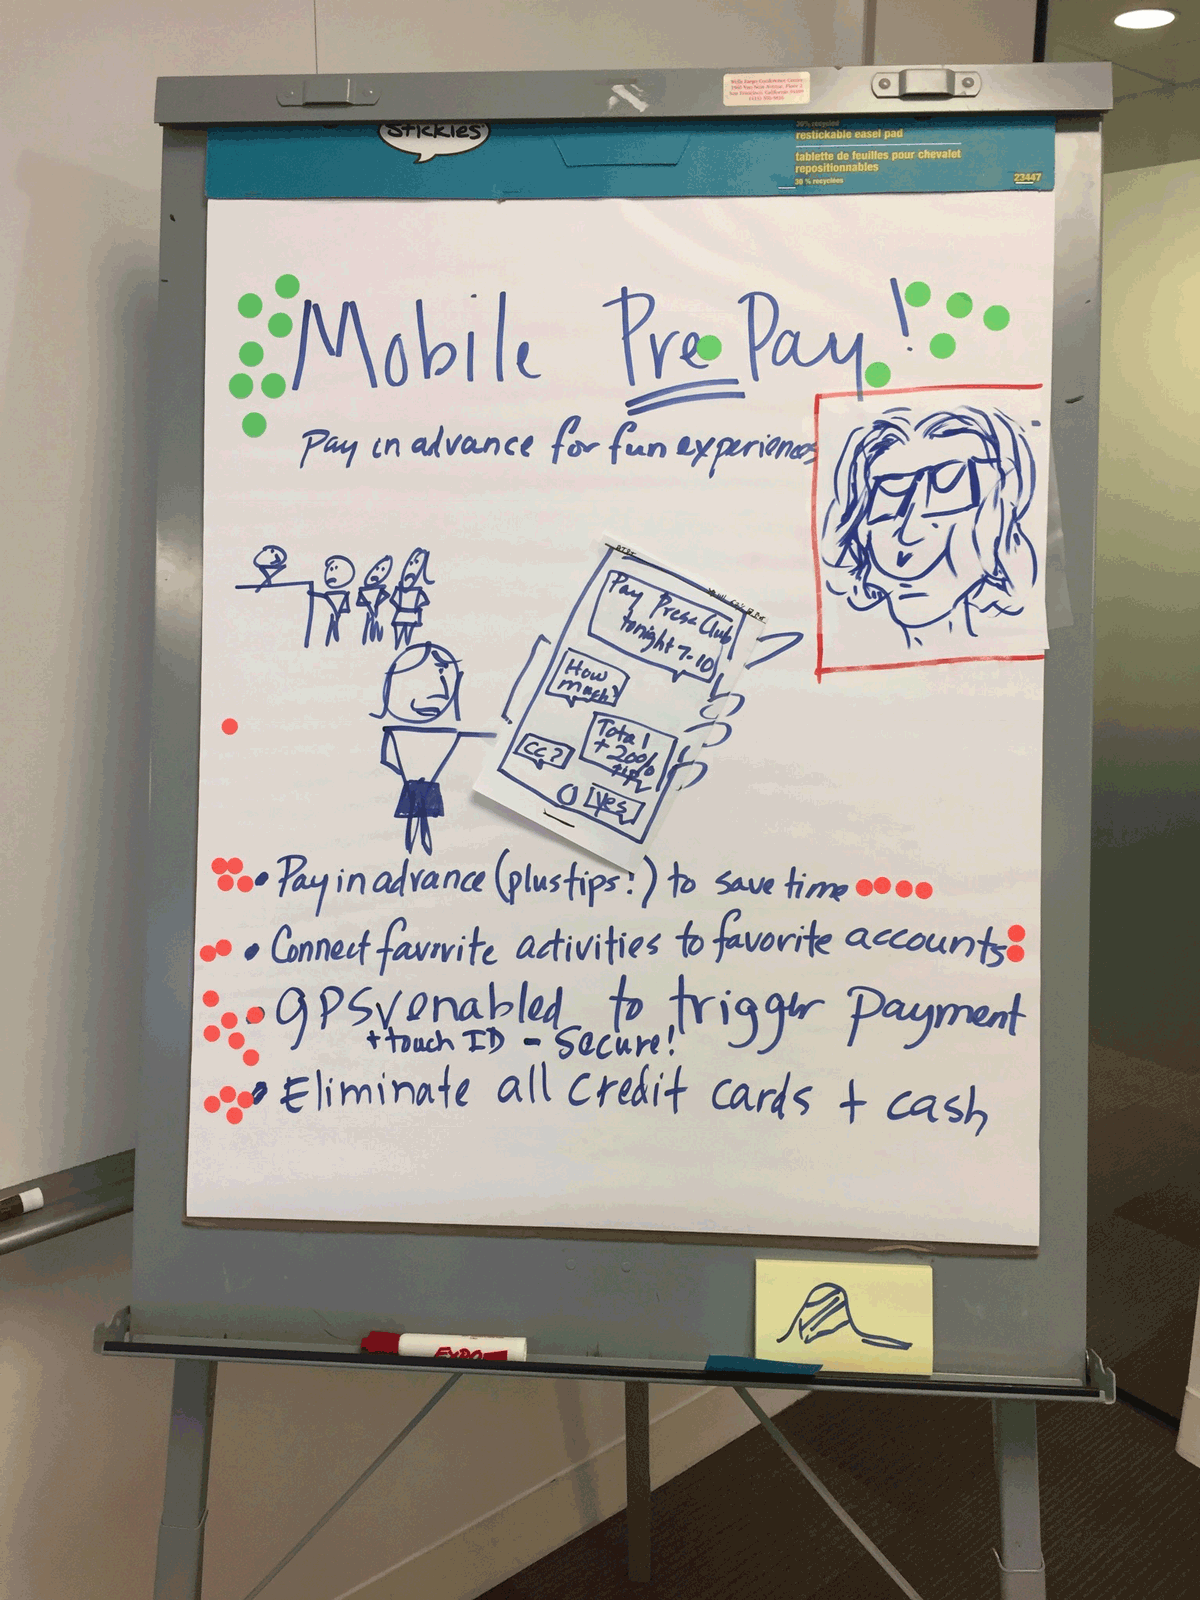 Stickies
30% recycled
restickable easel pad
tablette de feuilles pour chevalet
repositionnables
30 % recyclées
23447
Mobile Pre Pay!
Pay in advance for fun experiences
Pay Press Club
tonight 7-10
How
much?
Total
+ 20%
tip
CC?
yes
• Pay in advance (plus tips!) to save time
• Connect favorite activities to favorite accounts
• GPS enabled to trigger payment
+ touch ID - Secure!
• Eliminate all credit cards + cash
EXPO